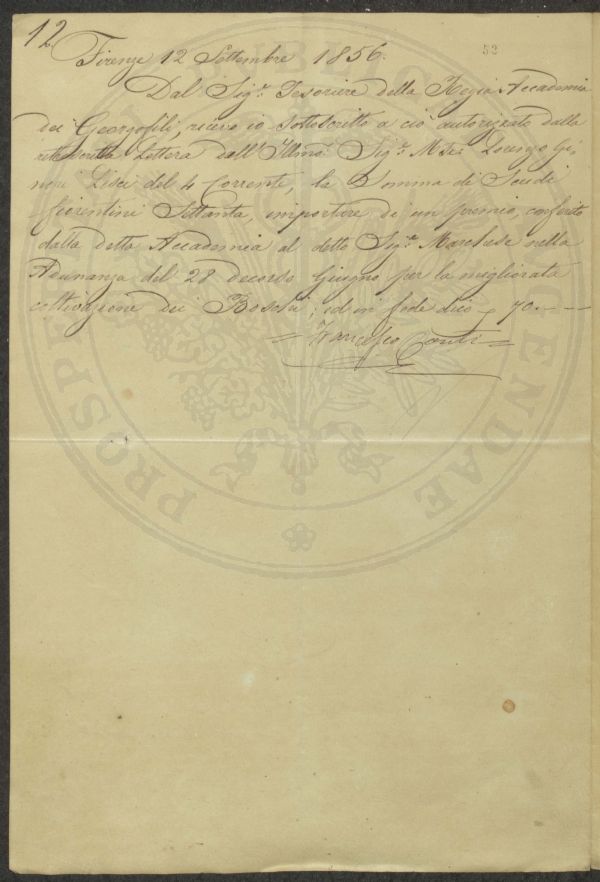 12.
Firenze 12 Settembre 1856.
52
Dal Sig.r Tesoriere della Regia Accademia
dei Georgofili, ricevo io sottoscritto a ciò autorizzato dalla
retroscritta Lettera dell'Illmo Sig.r M.se Lorenzo Gi,
nori Lisci del 4 Corrente, la Somma di Scudi
fiorentini Settanta, importare di un premio conferito
dalla detta Accademia al detto Sig.r Marchese nella
Adunanza del 28 decorso Giugno per la migliorata
coltivazione dei Boschi; ed in fede dico 70.--
Francesco Conti
PROSPERITATI PUBLICAE AUGENDAE